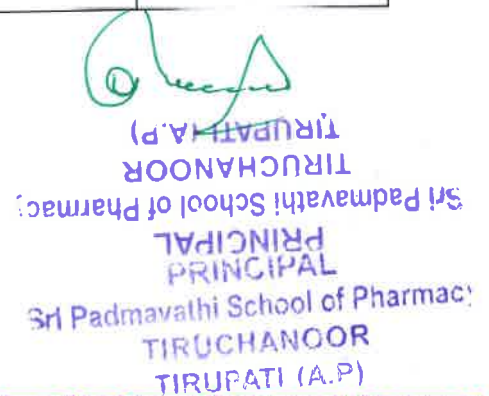 TIRUPATI (A.P)
TIRUCHANOOR
Sri Padmavathi School of Pharmac
PRINCIPAL
PRINCIPAL
Sri Padmavathi School of Pharmacy
TIRUCHANOOR
TIRUPATI (A.P)